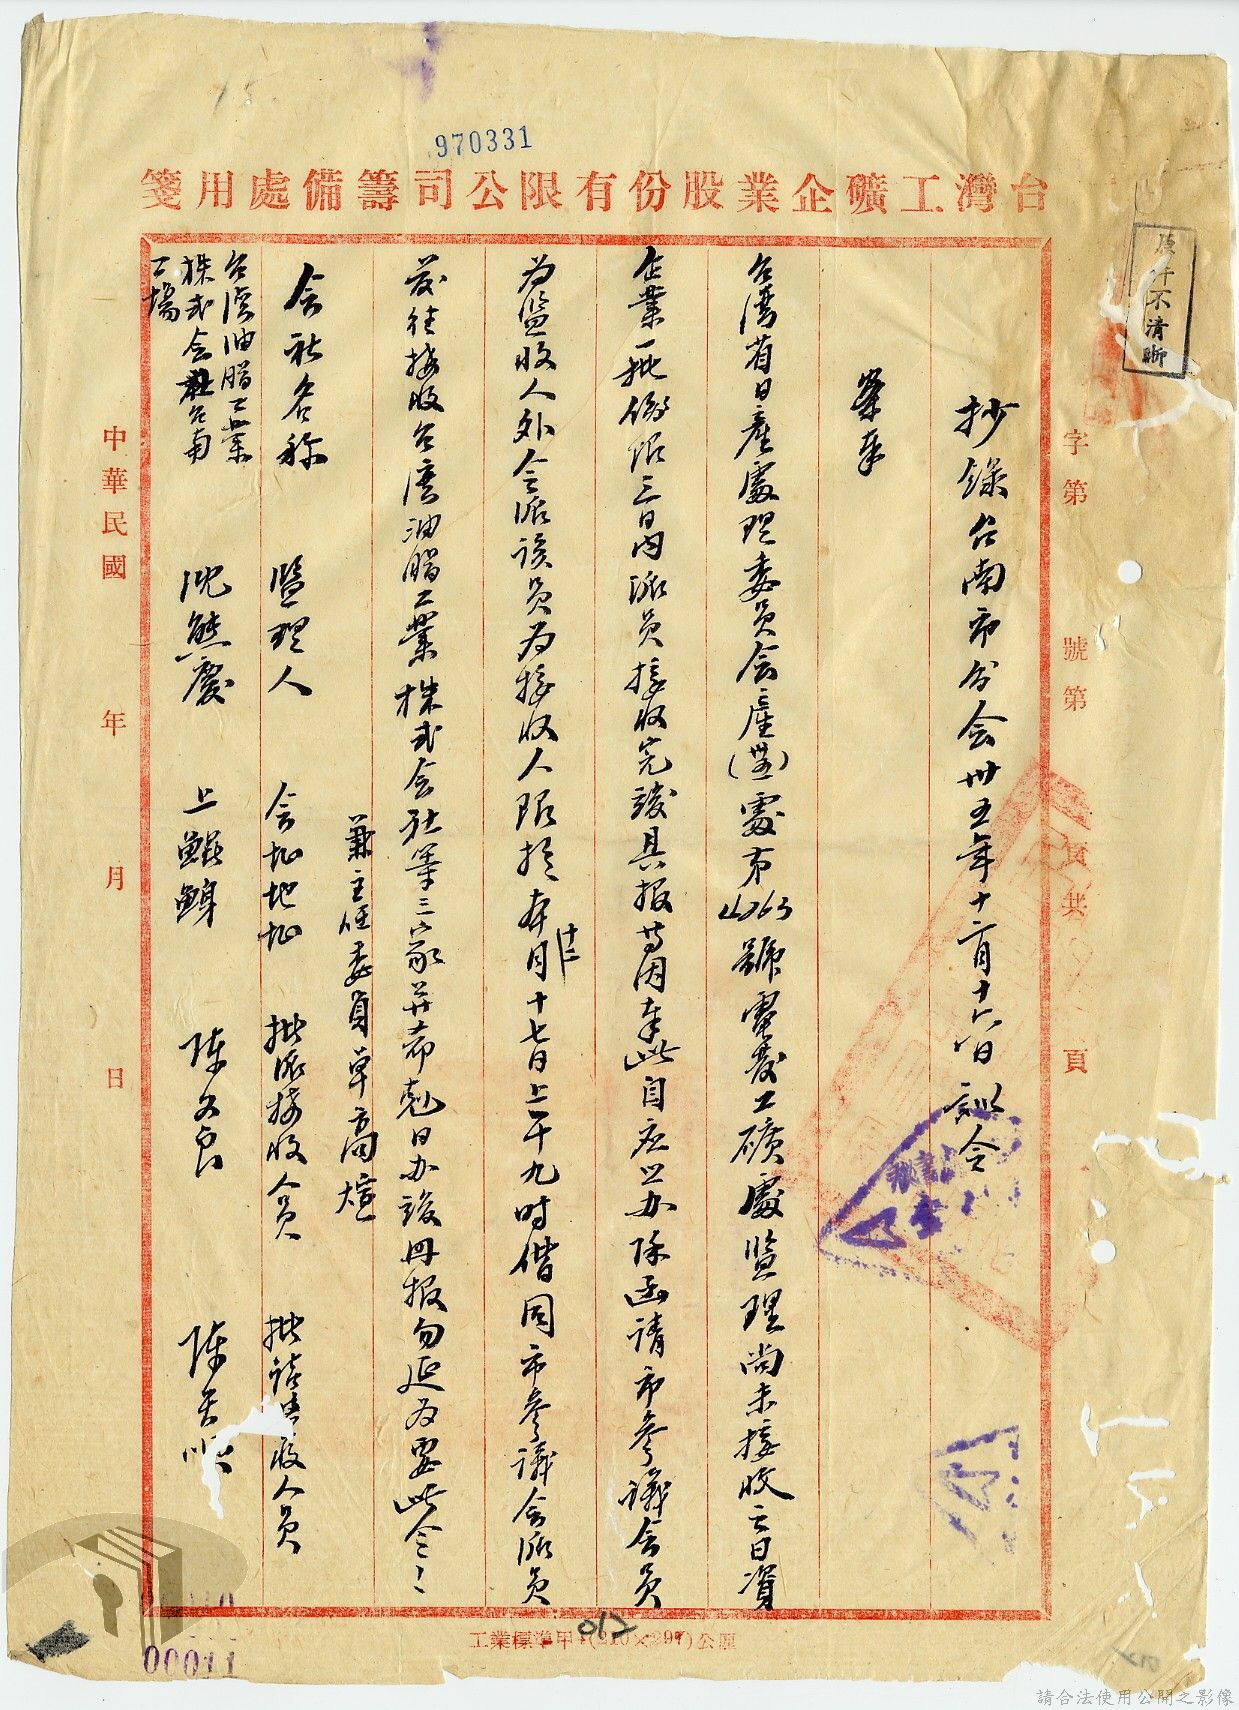 970331
台灣工礦企業股份有限公司籌備處用箋
原件不清晰
字第 號第 頁共 頁
抄錄台南市分会卅五年十二月十六日訓令
案奉
台湾省日產處理委員会產(世)處字第4763號電發工礦處監理尚未接收之日資
企業一批飭限三日內派員接收完竣具报等因奉此自应照办除函請市參議会員
为监收人外合派該員为接收人限於本月十七日上午九時偕同市參議会派員
十二
前往接收台湾油脂工業株式会社等三家並希剋日办竣冊报勿延为要此令
兼主任委員卓高煊
会社名称 監理人 会址地址 批派接收人員 批請監收人員
台湾油脂工業株式会社台南工場 沈熊慶 上鯤鯓 陳文良 陳天順
中華民國 年 月 日
工業標準甲4(210×297)公厘
012
00011
請合法使用公開之影像